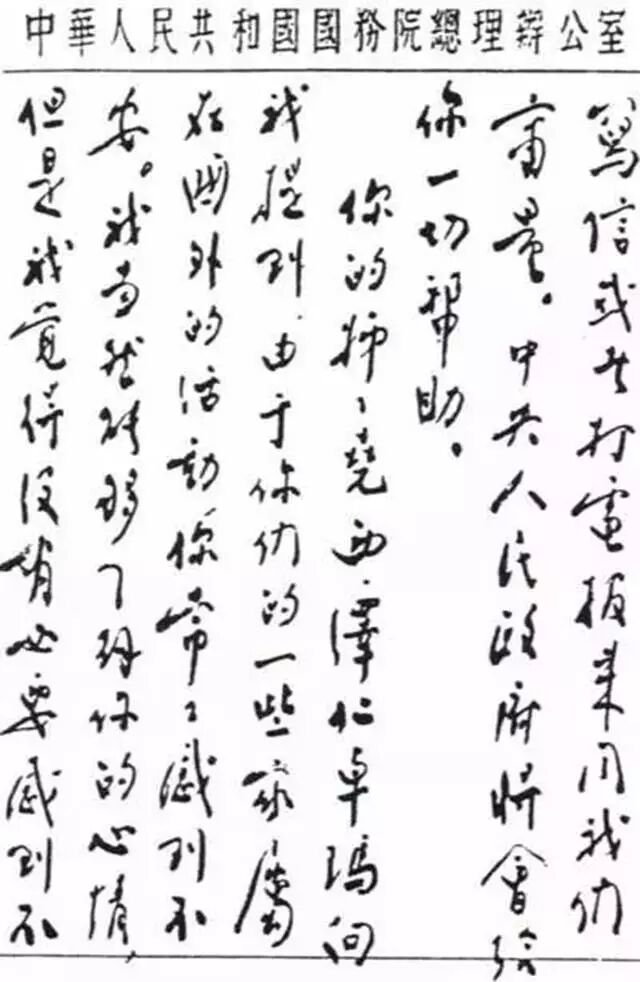 中華人民共和國國務院總理辦公室
寫信或者打電報來同我們
商量。中央人民政府將會給
你一切帮助。
你的姊々堯西澤仁卓瑪向
我提到由于你们的一些家屬
在國外的活動你常々感到不
安。我当然能够了解你的心情,
但是我覚得没有必要感到不